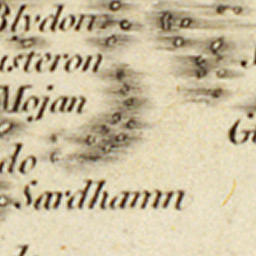 Blydon
usteron
Mojan
do
Sardhamn